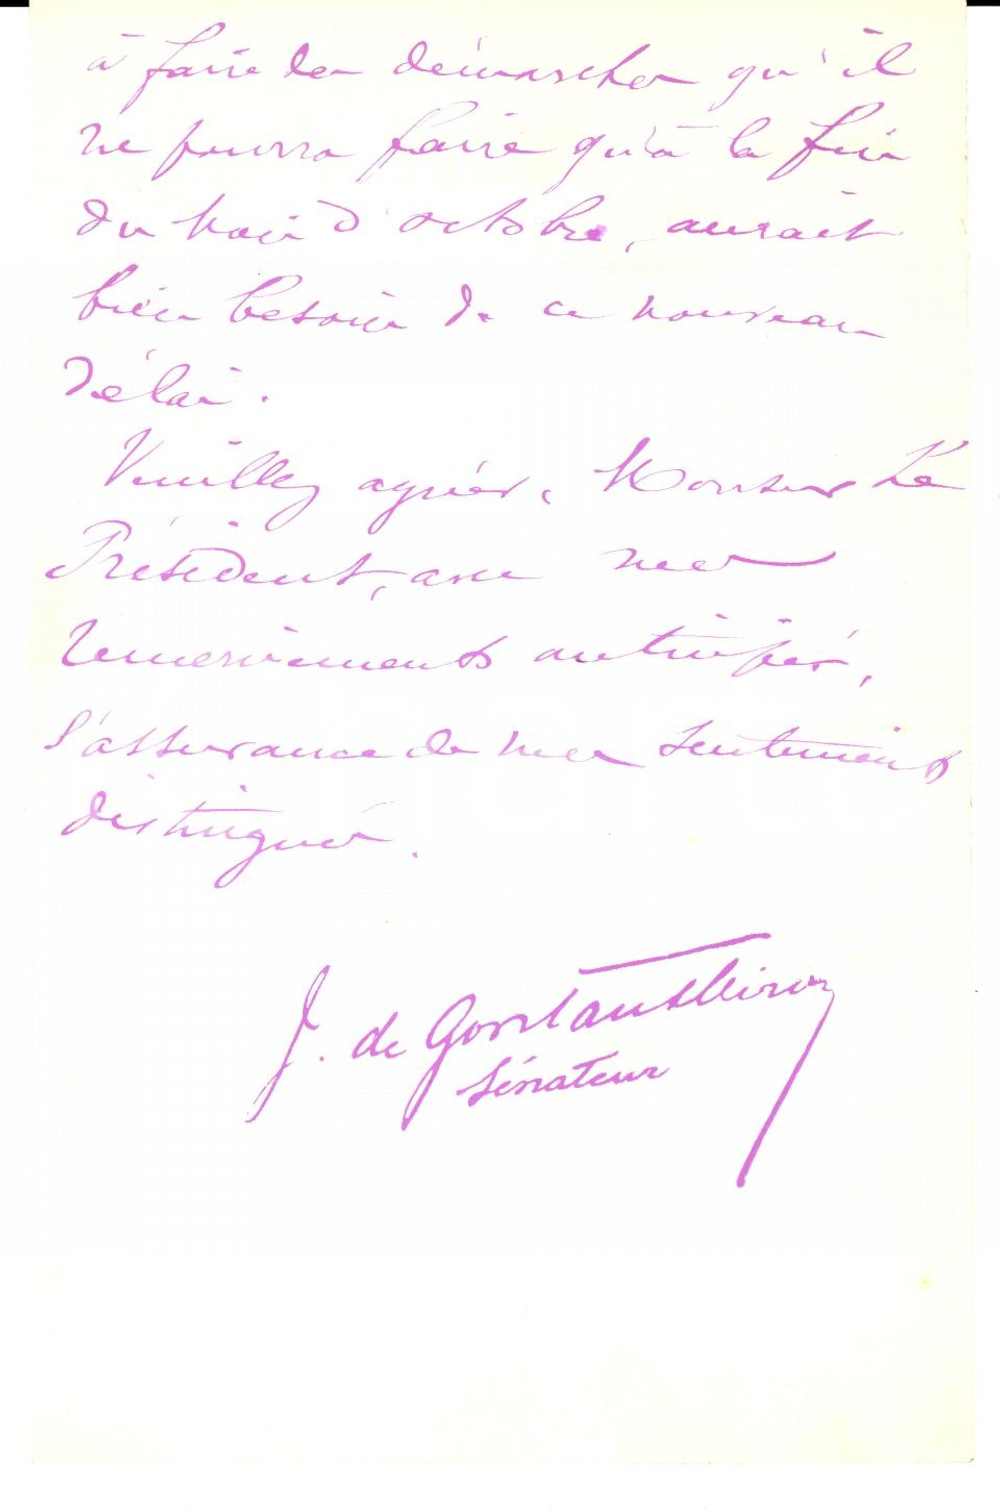 à faire des démarches qu'il
ne pourra faire qu'à la fin
du mois d'octobre, aurait
bien besoin de ce nouveau
délai.
Veuillez agréer, Monsieur Le
Président, avec mes
remerciements anticipés,
l'assurance de mes sentiments
distingués.
J. de
Sénateur